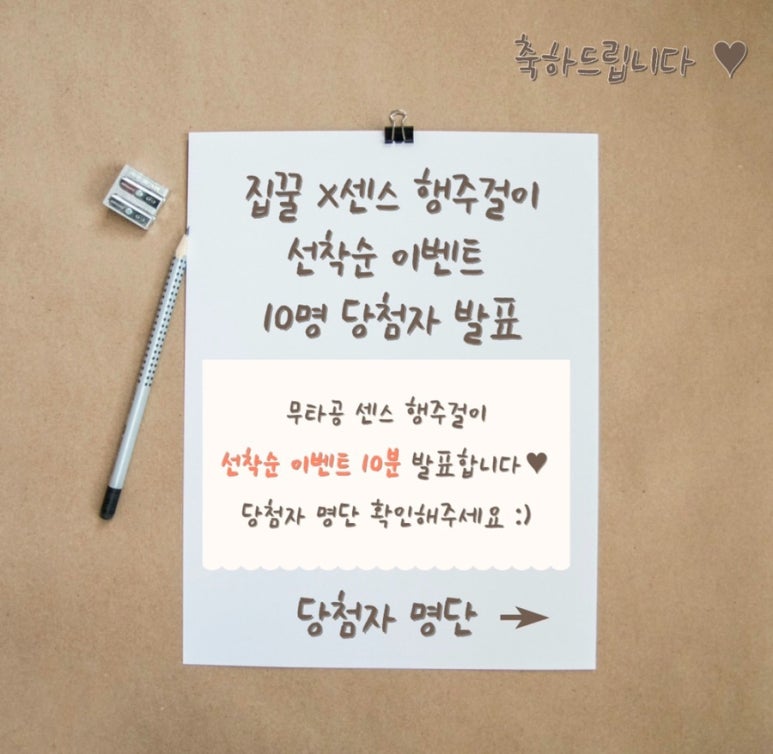 축하드립니다 ♥
집꿀 X센스 행주걸이
선착순 이벤트
10명 당첨자 발표
무타공 센스 행주걸이
선착순 이벤트 10분 발표합니다♥
당첨자 명단 확인해주세요 :)
당첨자 명단 →